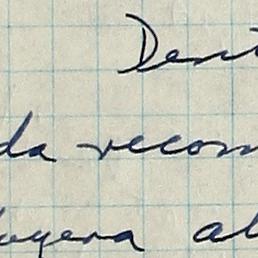 Dent
da recom
yera al